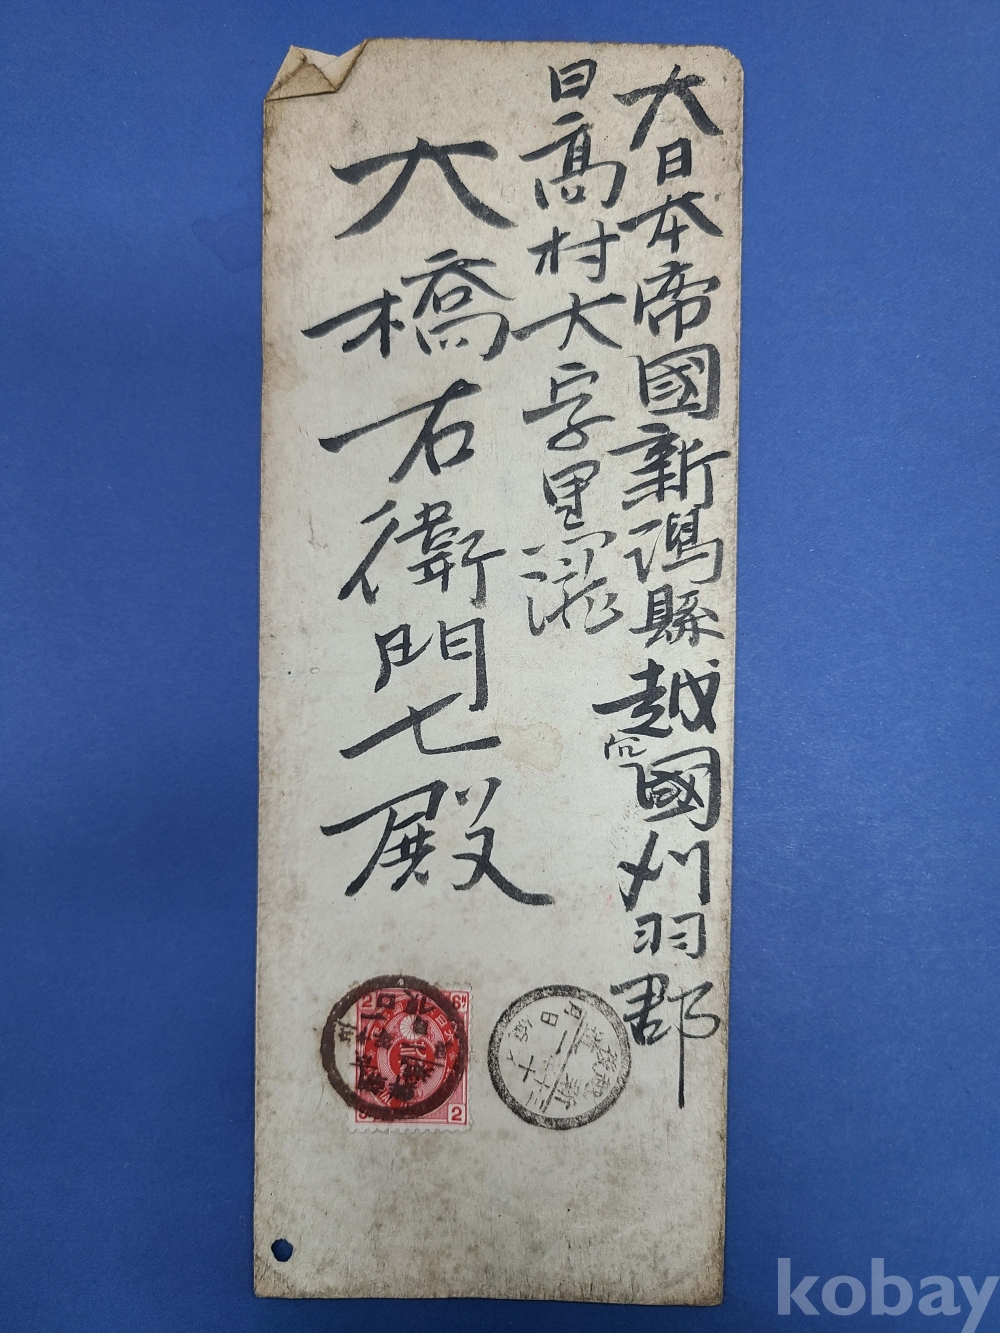 大日本帝國新潟縣越後國刈羽郡
日高村大字黒瀧
大橋右衛門七殿
2
2
kobay